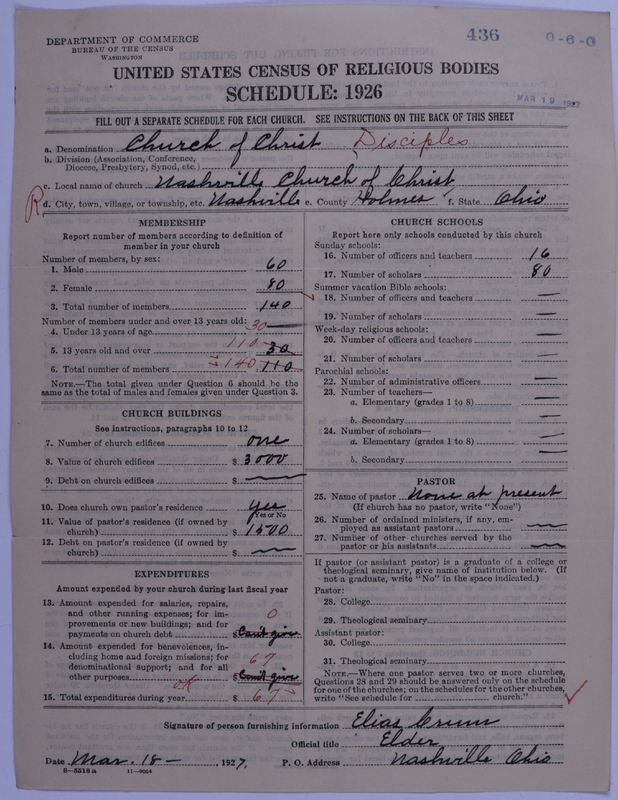 436
0-6-0
DEPARTMENT OF COMMERCE
BUREAU OF THE CENSUS
WASHINGTON
UNITED STATES CENSUS OF RELIGIOUS BODIES
SCHEDULE: 1926
MAR 19 1927
FILL OUT A SEPARATE SCHEDULE FOR EACH CHURCH. SEE INSTRUCTIONS ON THE BACK OF THIS SHEET
a. Denomination Church of Christ Disciples
b. Division (Association, Conference,
Diocese, Presbytery, Synod, etc.)
c. Local name of church Nashville Church of Christ
R d. City, town, village, or township, etc. Nashville e. County Holmes f. State Ohio
MEMBERSHIP
Report number of members according to definition of
member in your church
Number of members, by sex:
1. Male 60
2. Female 80
3. Total number of members 140
Number of members under and over 13 years old:
4. Under 13 years of age 30 —
5. 13 years old and over 110 30
6. Total number of members 140 110
NOTE.—The total given under Question 6 should be the
same as the total of males and females given under Question 3.
CHURCH BUILDINGS
See instructions, paragraphs 10 to 12
7. Number of church edifices one
8. Value of church edifices $ 3000
9. Debt on church edifices $ —
10. Does church own pastor's residence? yes
Yes or No
11. Value of pastor's residence (if owned by
church) $ 1500
12. Debt on pastor's residence (if owned by
church) $ —
EXPENDITURES
Amount expended by your church during last fiscal year
13. Amount expended for salaries, repairs,
and other running expenses; for im-
provements or new buildings; and for
payments on church debt 0 $ Can't give
14. Amount expended for benevolences, in-
cluding home and foreign missions; for
denominational support; and for all
other purposes 67 $ Can't give
ok
15. Total expenditures during year $ 67
CHURCH SCHOOLS
Report here only schools conducted by this church
Sunday schools:
16. Number of officers and teachers 16
17. Number of scholars 80
Summer vacation Bible schools:
18. Number of officers and teachers —
19. Number of scholars —
Week-day religious schools:
20. Number of officers and teachers —
21. Number of scholars —
Parochial schools:
22. Number of administrative officers —
23. Number of teachers—
a. Elementary (grades 1 to 8) —
b. Secondary —
24. Number of scholars—
a. Elementary (grades 1 to 8) —
b. Secondary —
PASTOR
25. Name of pastor None at present
(If church has no pastor, write "None")
26. Number of ordained ministers, if any, em-
ployed as assistant pastors —
27. Number of other churches served by the
pastor or his assistants —
If pastor (or assistant pastor) is a graduate of a college or
theological seminary, give name of institution below. (If
not a graduate, write "No" in the space indicated.)
Pastor:
28. College
29. Theological seminary
Assistant pastor:
30. College
31. Theological seminary
NOTE.—Where one pastor serves two or more churches,
Questions 28 and 29 should be answered only on the schedule
for one of the churches; on the schedules for the other churches,
write "See schedule for church."
Signature of person furnishing information Elias Crum
Official title Elder
Date Mar. 18 — , 1927. P. O. Address Nashville Ohio
8—5518a 11—9054